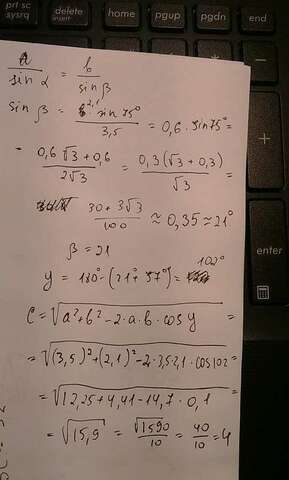 prt sc sysrq delete insert home pgup pgdn end
+
enter
a/sin α = b/sin β
sin β = 2,1 · sin 75°/3,5 = 0,6 · sin 75° =
= 0,6√3 + 0,6/2√3 = 0,3(√3 + 0,3)/√3 =
30 + 3√3/100 ≈ 0,35 ≈ 21°
β = 21
γ = 180° - (21° + 57°) = 102°
c = √a² + b² - 2 · a · b · cos γ =
= √(3,5)² + (2,1)² - 2 · 3,5 · 2,1 · cos 102 =
= √12,25 + 4,41 - 14,7 · 0,1
= √15,9 = √1590/10 = 40/10 = 4